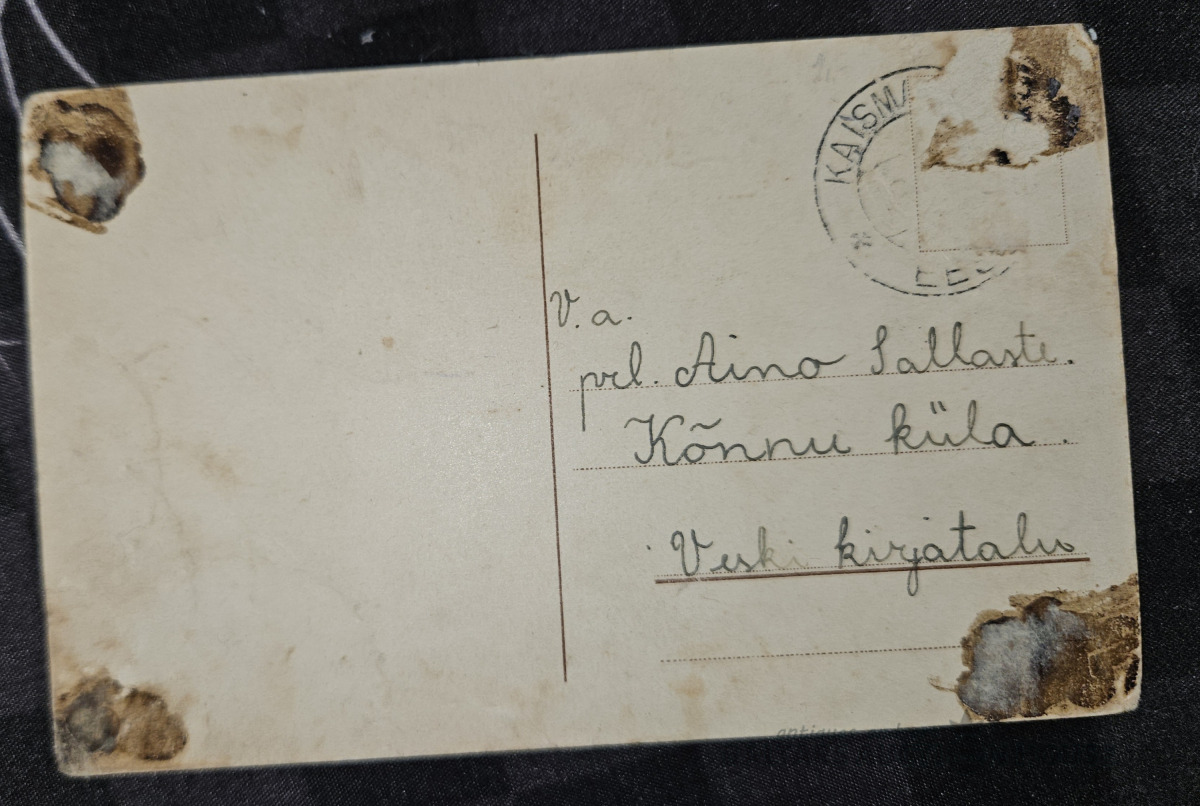 KAISMA
EES
V. a.
prl. Aino Sallaste.
Kõnnu küla.
Veski kirjatalu